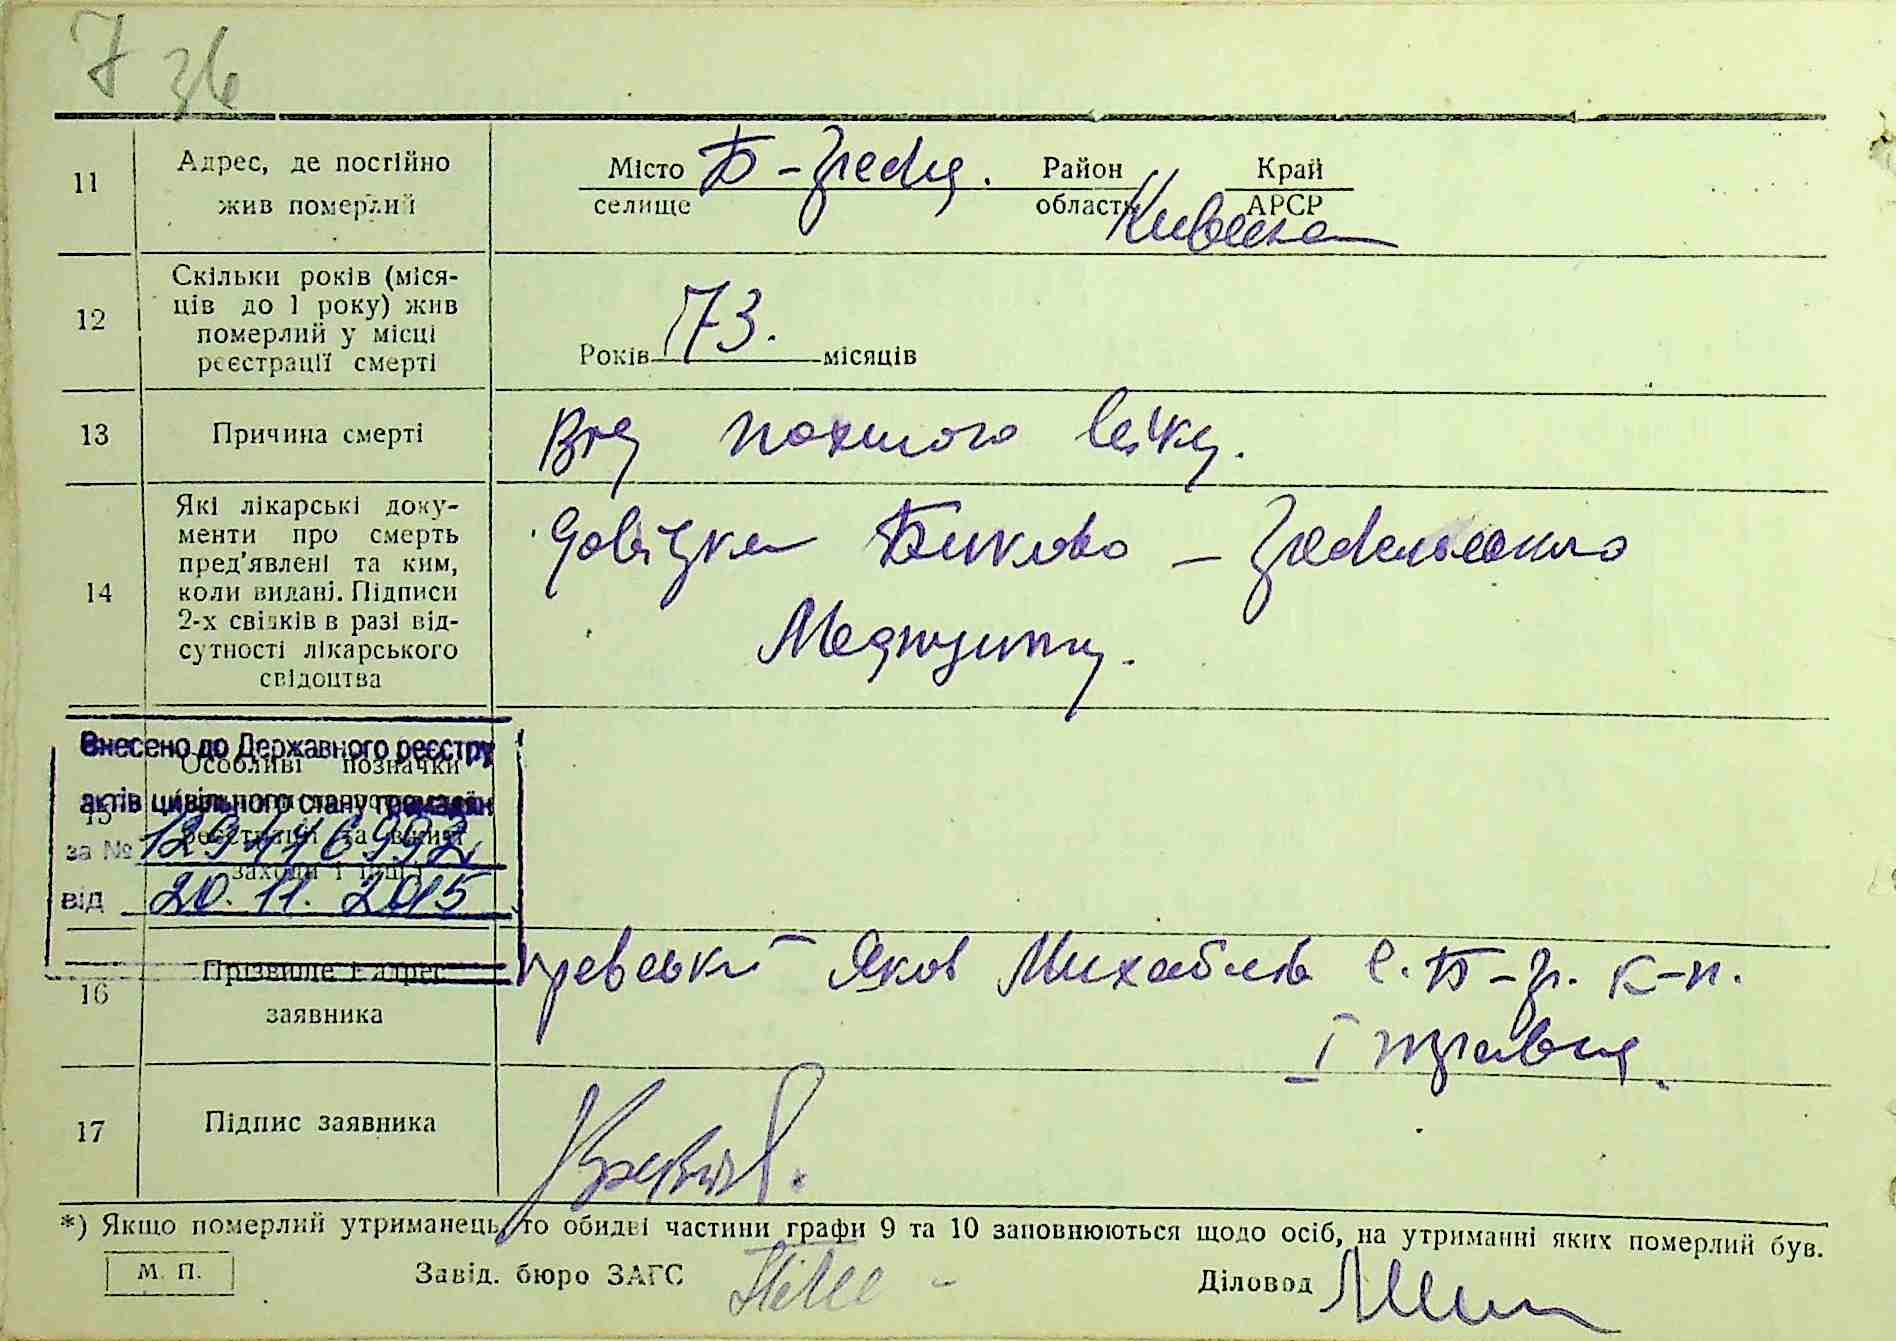 7 36
11 Адрес, де постійно жив померлий
Місто Б-Гребля. Район Край
селище область Київська АРСР
12 Скільки років (міся-
ців до 1 року) жив
померлий у місці
реєстрації смерті
Років 73. місяців
13 Причина смерті
Від похилого віку.
14 Які лікарські доку-
менти про смерть
пред'явлені та ким,
коли видані. Підписи
2-х свідків в разі від-
сутності лікарського
свідоцтва
Довідка Биково-Гребельського
Медпункту.
Внесено до Державного реєстру
актів цивільного стану громадян
за №
від 20.11.2015
15 Особливі позначки
заходи і інш.)
16 Прізвище і адрес
заявника
Яков Михайлов с. Б-Гр. к-п.
І травня.
17 Підпис заявника
*) Якщо померлий утриманець, то обидві частини графи 9 та 10 заповнюються щодо осіб, на утриманні яких померлий був.
М. П. Завід. бюро ЗАГС Діловод